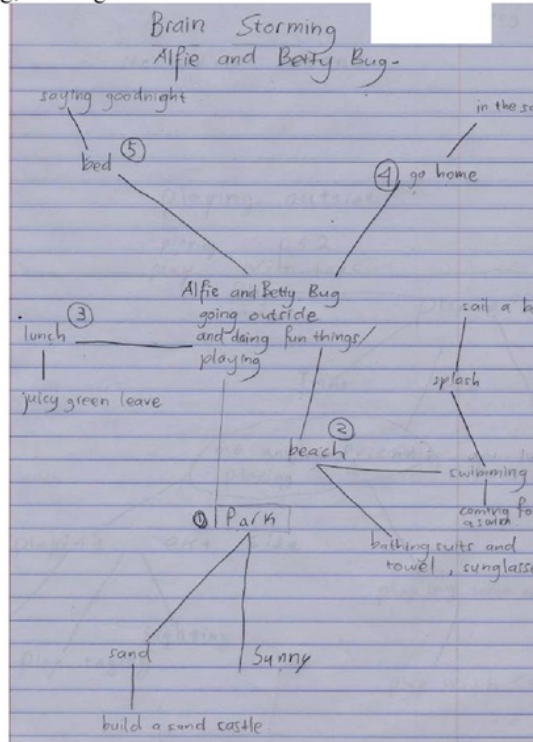 Brain Storming
Alfie and Betty Bug-
saying goodnight
in the
bed ⑤
④ go home
Alfie and Betty Bug
going outside
and doing fun things/
playing
sail a
lunch ③
juicy green leave
splash
beach ②
swimming
coming
① Park
bathing suits and
towel, sunglasse
sand
Sunny
build a sand castle